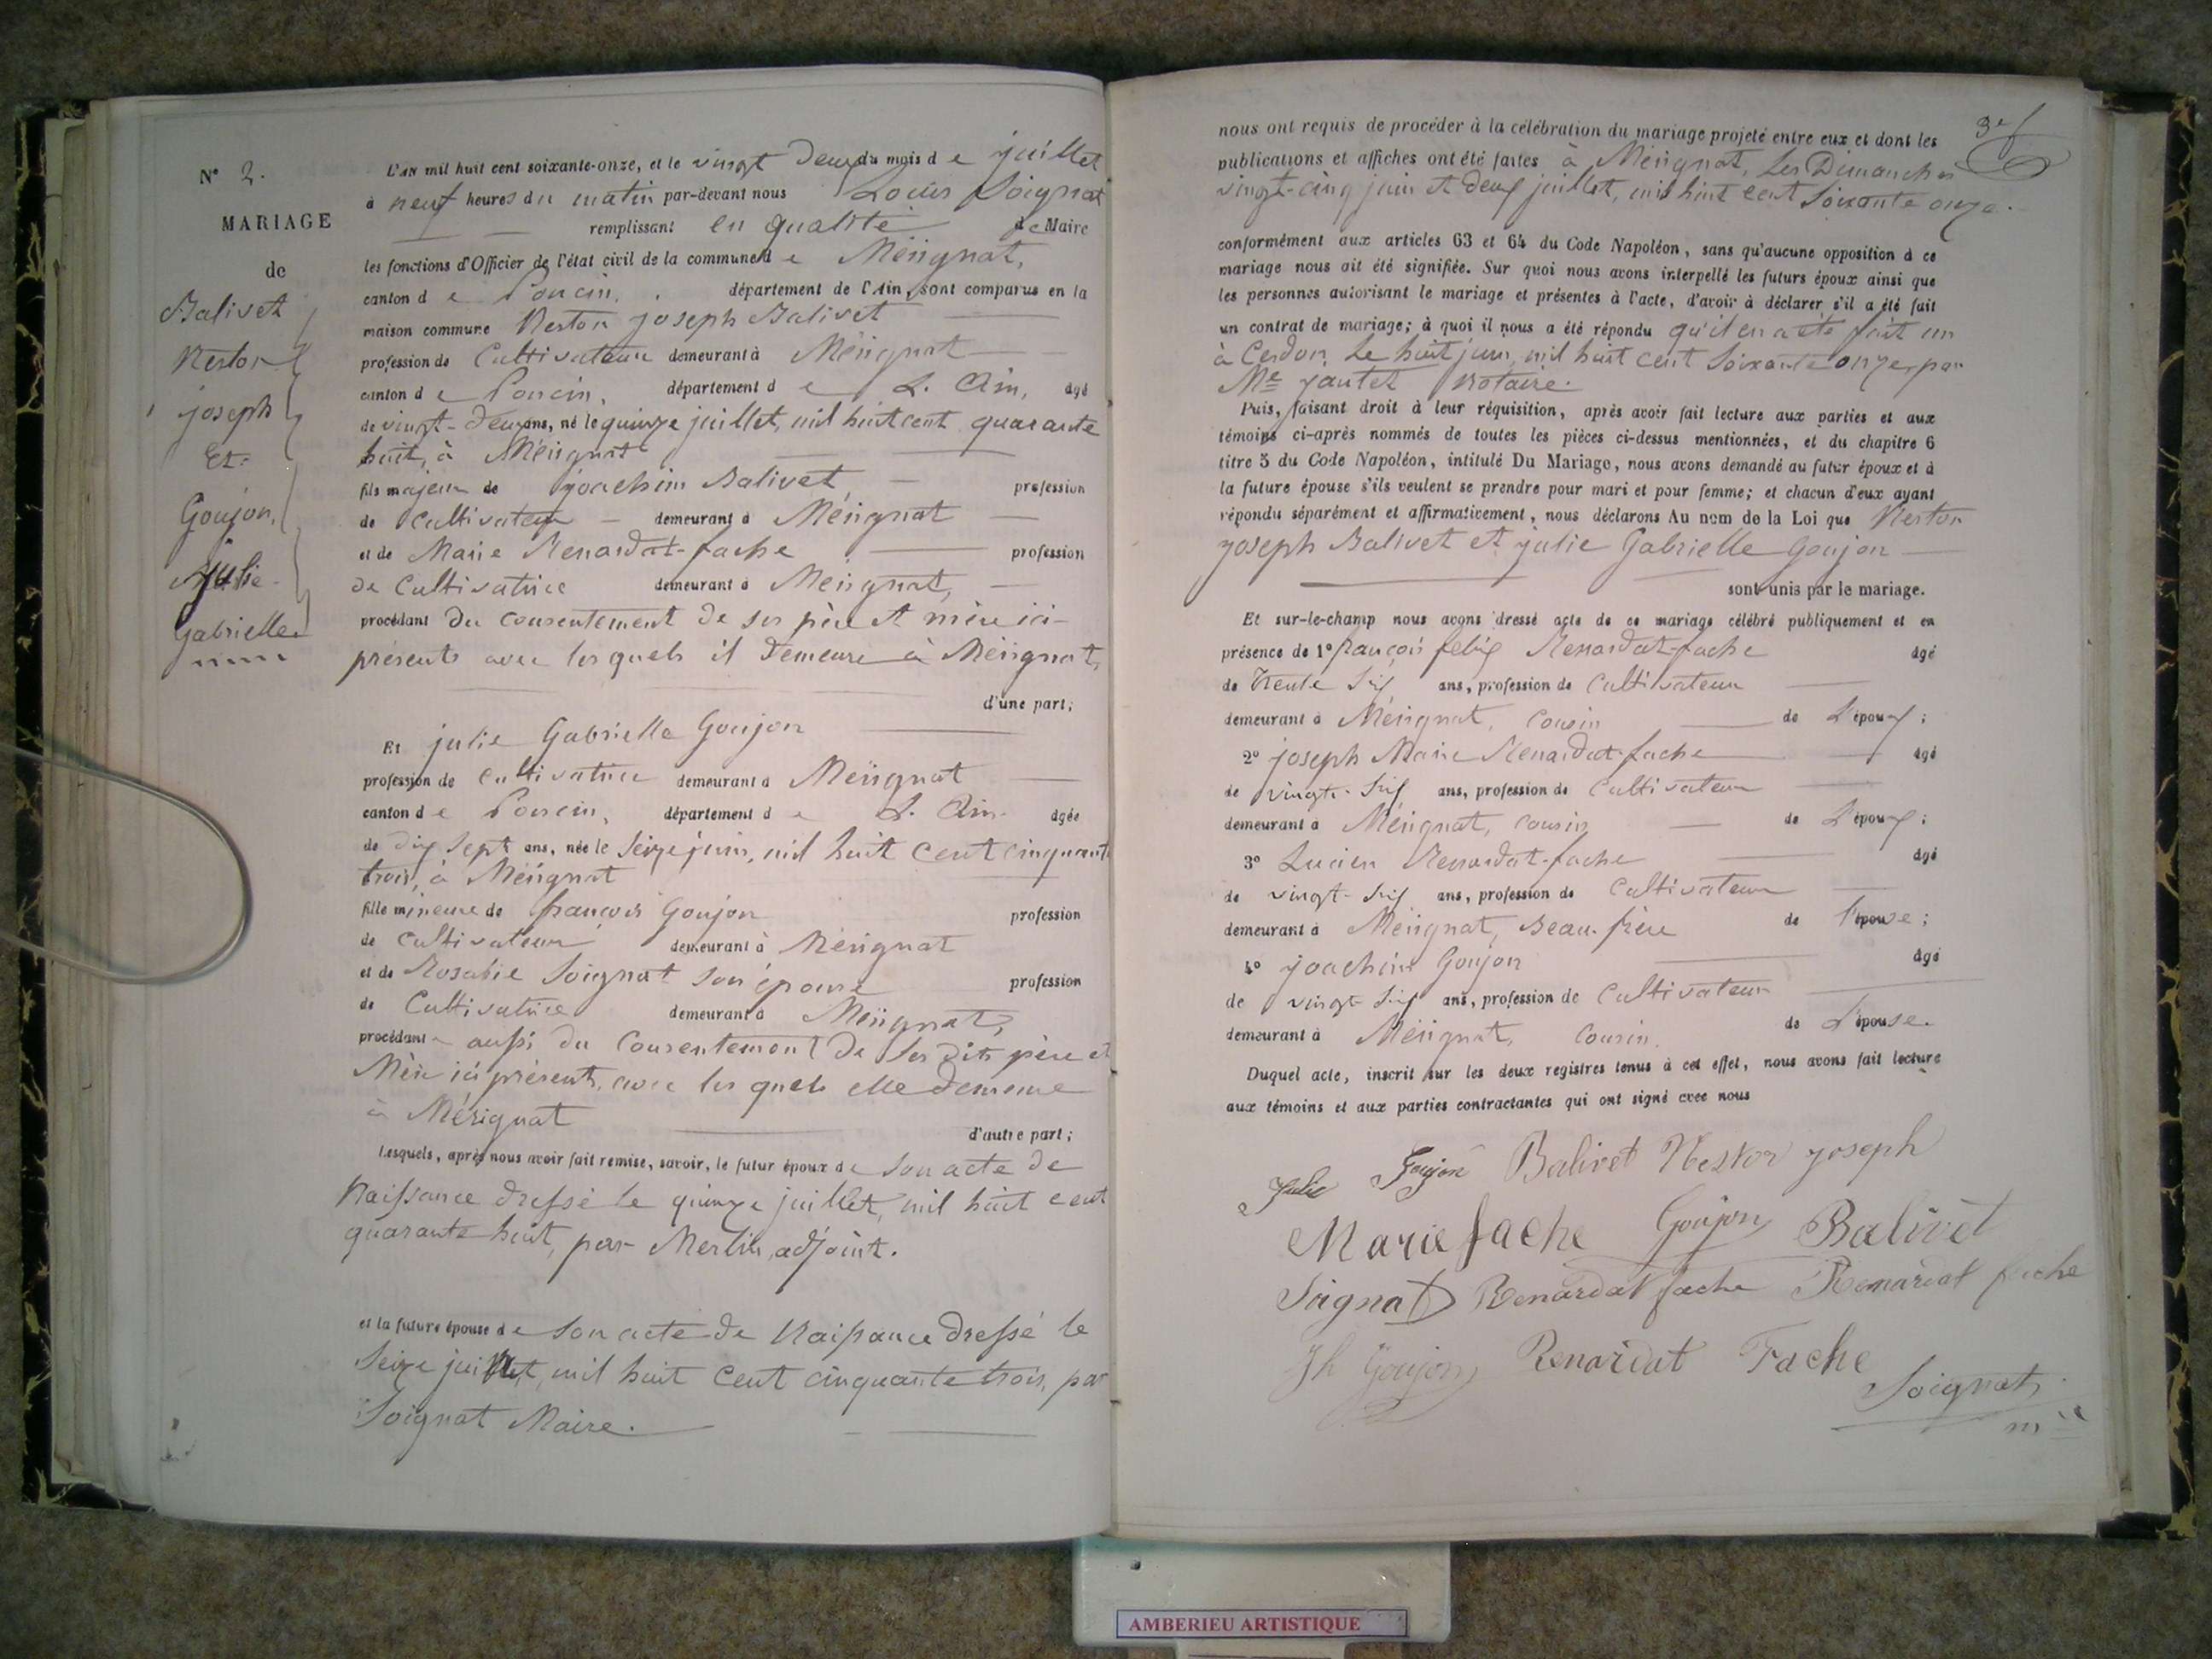 N° 2.
MARIAGE
de
Balivet
Nestor
joseph
Et
Goujon,
Julie
gabrielle.
L'AN mil huit cent soixante-onze, et le vingt Deux du mois d e juillet
à neuf heures du matin par-devant nous Louis Soignat
remplissant en qualité de Maire
les fonctions d'Officier de l'état civil de la commune d e Mérignat,
canton d e Poncin, département de l'Ain, sont comparus en la
maison commune Nestor joseph Balivet
profession de Cultivateur demeurant à Mérignat
canton d e Poncin, département d e L. Ain, âgé
de vingt-Deux ans, né le quinze juillet, mil huit cent quarante
huit, à Mérignat
fils majeur de joachim Balivet, profession
de Cultivateur demeurant à Mérignat
et de Marie Renardat-fache profession
de Cultivatrice demeurant à Mérignat,
procédant Du consentement de ses père et mère ici-
présents avec lesquels il Demeure à Mérignat,
d'une part;
Et julie Gabrielle Goujon
profession de Cultivatrice demeurant à Mérignat
canton d e Poncin, département d e L. Ain. âgée
de dix sept ans, née le Seize juin, mil huit cent cinquante
trois, à Mérignat
fille mineure de françois Goujon profession
de Cultivateur demeurant à Mérignat
et de Rosalie Soignat son épouse profession
de Cultivatrice demeurant à Mérignat,
procédant aussi du Consentement De Ses Dits père et
Mère ici présents, avec lesquels elle demeure
à Mérignat
d'autre part;
Lesquels, après nous avoir fait remise, savoir, le futur époux d e Son acte de
Naissance dressé le quinze juillet, mil huit cent
quarante huit, par Merlin, adjoint.
et la future épouse d e Son acte de Naissance dressé le
Seize juillet, mil huit Cent cinquante trois, par
Soignat Maire.
3e f
nous ont requis de procéder à la célébration du mariage projeté entre eux et dont les
publications et affiches ont été faites à Mérignat, Les Dimanches
vingt-cinq juin et deux juillet, mil huit cent Soixante onze.
conformément aux articles 63 et 64 du Code Napoléon, sans qu'aucune opposition à ce
mariage nous ait été signifiée. Sur quoi nous avons interpellé les futurs époux ainsi que
les personnes autorisant le mariage et présentes à l'acte, d'avoir à déclarer s'il a été fait
un contrat de mariage; à quoi il nous a été répondu qu'il en a été fait un
à Cerdon, Le huit juin, mil huit cent Soixante onze, par
Me jautet Notaire.
Puis, faisant droit à leur réquisition, après avoir fait lecture aux parties et aux
témoins ci-après nommés de toutes les pièces ci-dessus mentionnées, et du chapitre 6
titre 5 du Code Napoléon, intitulé Du Mariage, nous avons demandé au futur époux et à
la future épouse s'ils veulent se prendre pour mari et pour femme; et chacun d'eux ayant
répondu séparément et affirmativement, nous déclarons Au nom de la Loi que Nestor
joseph Balivet et julie Gabrielle Goujon
sont unis par le mariage.
Et sur-le-champ nous avons dressé acte de ce mariage célébré publiquement et en
présence de 1° françois felix Renardat-fache âgé
de Trente Six ans, profession de Cultivateur
demeurant à Mérignat, Cousin de L'époux;
2° joseph Marie Renardat-fache âgé
de vingt-Six ans, profession de Cultivateur
demeurant à Mérignat, cousin de L'époux;
3° Lucien Renardat-fache âgé
de vingt-Six ans, profession de Cultivateur
demeurant à Mérignat, Beau-frère de l'épouse;
4° joachim Goujon âgé
de vingt Six ans, profession de Cultivateur
demeurant à Mérignat, Cousin. de L'épouse.
Duquel acte, inscrit sur les deux registres tenus à cet effet, nous avons fait lecture
aux témoins et aux parties contractantes qui ont signé avec nous
Julie Goujon Balivet Nestor joseph
Marie fache Goujon Balivet
Soignat Renardat fache Renardat fache
Jh Goujon Renardat Fache
Soignat
AMBERIEU ARTISTIQUE